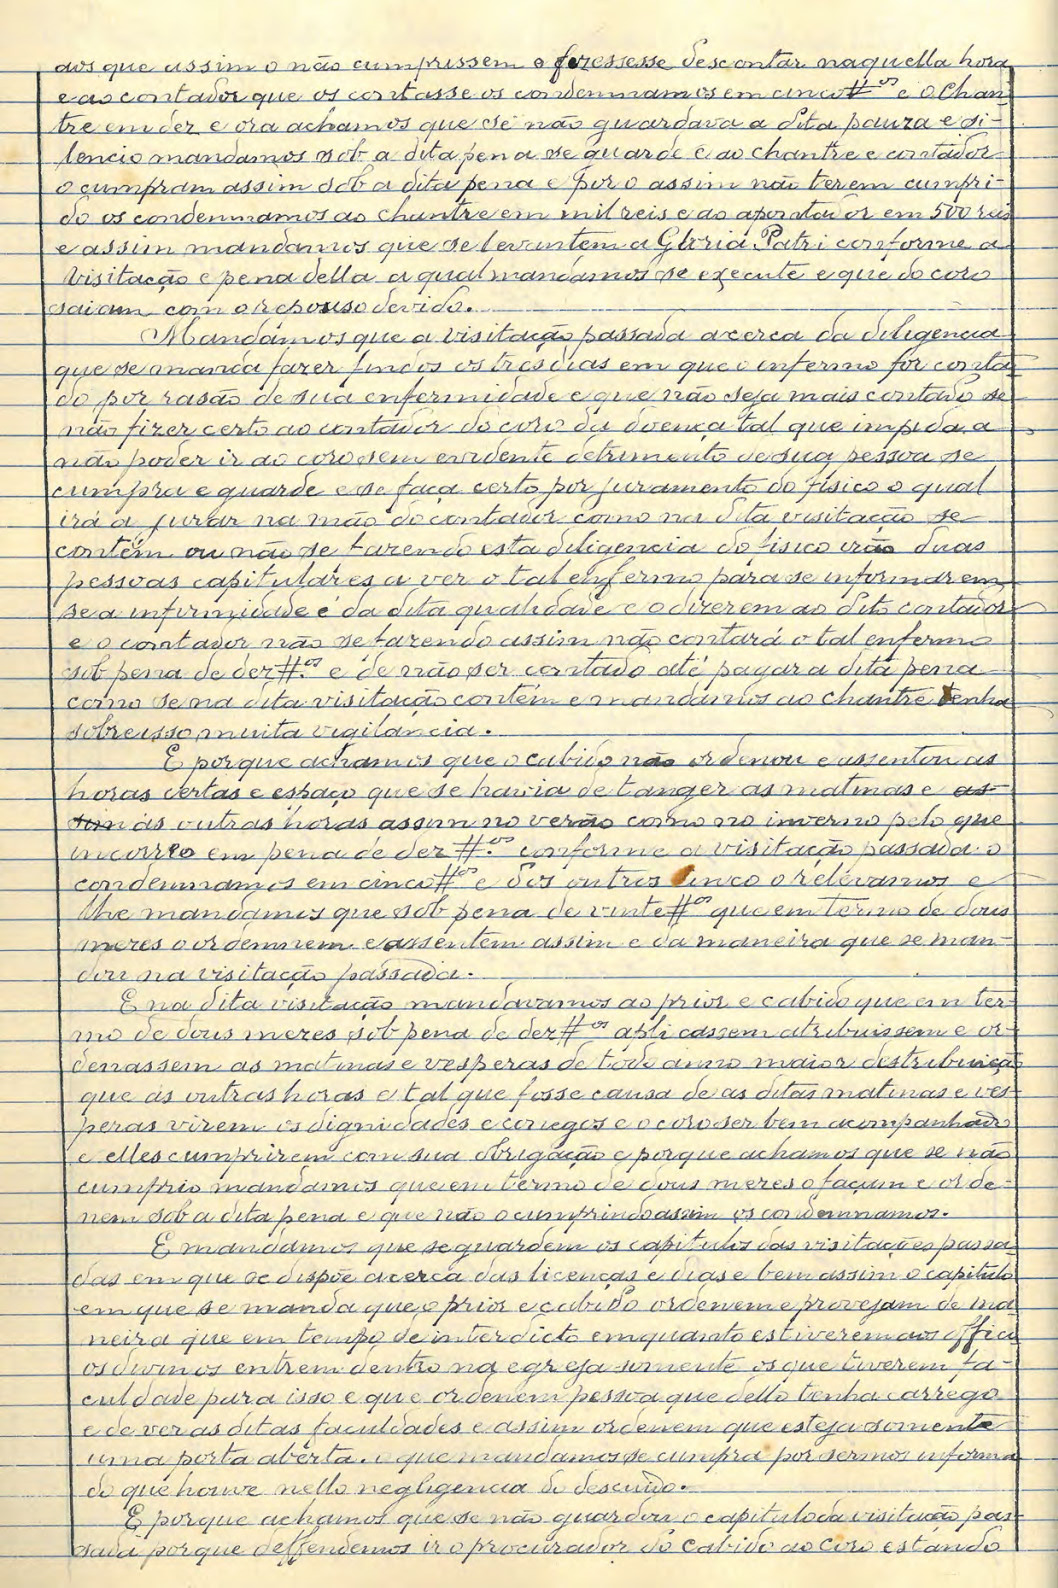 aos que assim o não cumprissem o fizessesse descontar naquella hora
e ao contador que os contasse os condemnamos em cinco #ᵒˢ e o Chan-
tre em dez e ora achamos que se não guardava a dita pauza e si-
lencio mandamos sob a dita pena se guarde e ao chantre e contador
o cumpram assim sob a dita pena e por o assim não terem cumpri-
do os condemnamos ao chantre em mil reis e ao apontador em 500 reis
e assim mandamos que se levantem a Gloria Patri conforme a
visitação e pena della a qual mandamos se execute e que do coro
saiam com o repouso devido.
Mandámos que a visitação passada acerca da diligencia
que se manda fazer findos os tres dias em que o enfermo for conta-
do por rasão de sua enfermidade e que não seja mais contado se
não fizer certo ao contador do coro da doença tal que impida a
não poder ir ao coro sem evidente detrimento de sua pessoa se
cumpra e guarde e se faça certo por juramento do fisico o qual
irá a jurar na mão do contador como na dita visitação se
contém ou não se fazendo esta diligencia do fisico irão duas
pessoas capitulares a ver o tal enfermo para se informarem
se a infirmidade é da dita qualidade e o dizerem ao dito contador
e o contador não se fazendo assim não contará o tal enfermo
sob pena de dez #ᵒˢ e de não ser contado até pagar a dita pena
como se na dita visitação contém e mandamos ao chantre tenha
sobre isso muita vigilancia.
E porque achamos que o cabido não ordenou e assentou as
horas certas e espaço que se havia de tanger as matinas e as-
sim ás outras horas assim no verão como no inverno pelo que
incorreo em pena de dez #ᵒˢ conforme a visitação passada o
condemnamos em cinco #ᵒˢ e dos outros cinco o relévamos e
lhe mandámos que sob pena de vinte #ᵒˢ que em termo de dous
mezes o ordennem e assentem assim e da maneira que se man-
dou na visitação passada.
E na dita visitação mandavamos ao prior e cabido que em ter-
mo de dous mezes sob pena de dez #ᵒˢ aplicassem atribuissem e or-
denassem as matinas e vesperas de todo anno maior destribuiçã
que ás outras horas e tal que fosse causa de as ditas matinas e ves-
peras virem os dignidades e conegos e o coro ser bem acompanhado
e elles cumprirem com sua obrigação e porque achamos que se não
cumprio mandamos que em termo de dous mezes o façam e orde-
nem sob a dita pena e que não o cumprindo assim os condemnamos.
E mandamos que se guardem os capitulos das visitações passa-
das em que se dispõe acerca das licenças e dias e bem assim o capitulo
em que se manda que o prior e cabido ordenem e provejam de ma-
neira que em tempo de interdicto emquanto estiverem aos offici
os divinos entrem dentro na egreja somente os que tiverem fa-
culdade para isso e que ordenem pessoa que dello tenha carrego
e de ver as ditas faculdades e assim ordenem que esteja somente
uma porta aberta. o que mandamos se cumpra por sermos informa
do que houve nello negligencia do descuido.
E porque achamos que se não guardou o capitulo da visitação pas-
sada porque deffendemos ir o procurador do cabido ao coro estando